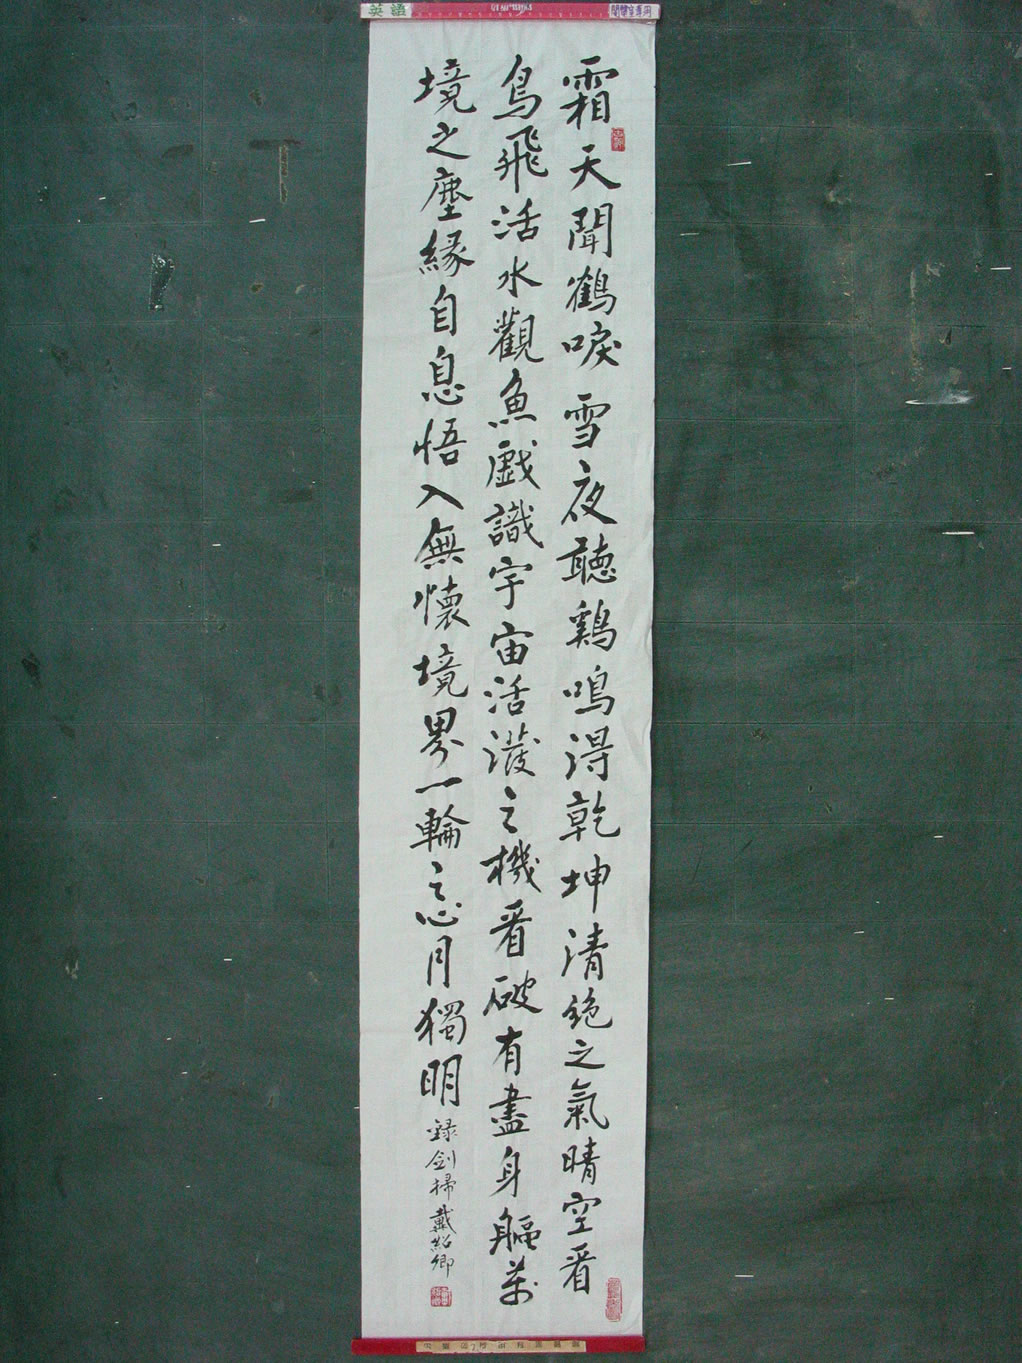 英語
霜天聞鶴唳雪夜聽鷄鳴得乾坤清絶之氣晴空看
鳥飛活水觀魚戯識宇宙活潑之機看破有盡身軀萬
境之塵緣自息悟入無懷境界一輪之心月獨明
錄劍掃戴紹卿